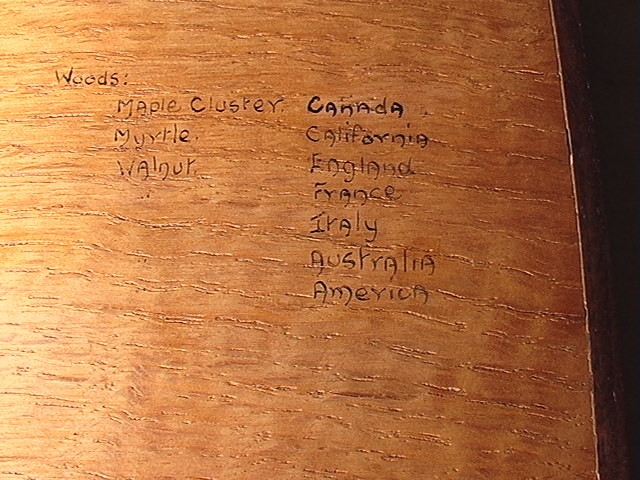 Woods:
Maple Cluster. Canada.
Myrtle. California
Walnut England
France
Italy
Australia
America